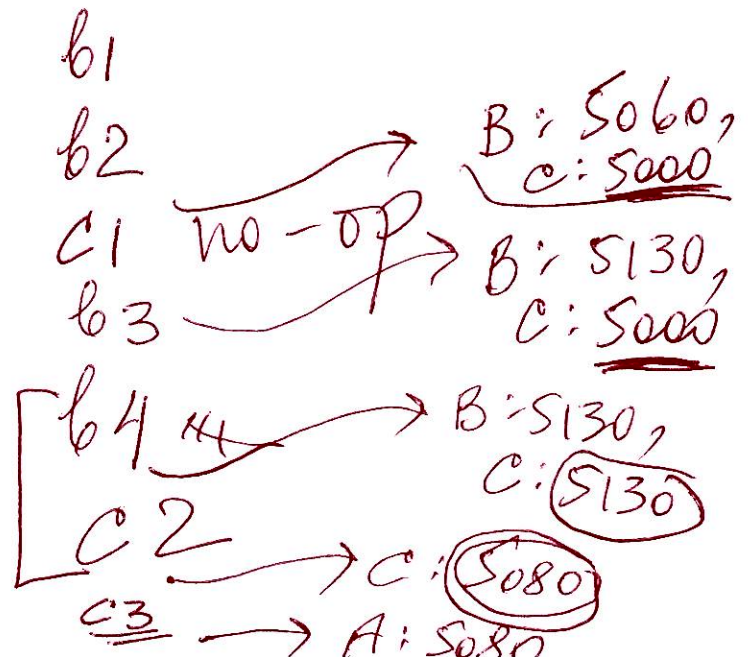 b1
b2 B: 5060,
C: 5000
C1 no-op
b3 B: 5130,
C: 5000
b4 B: 5130,
C: 5130
C2 C: 5080
C3 A: 5080